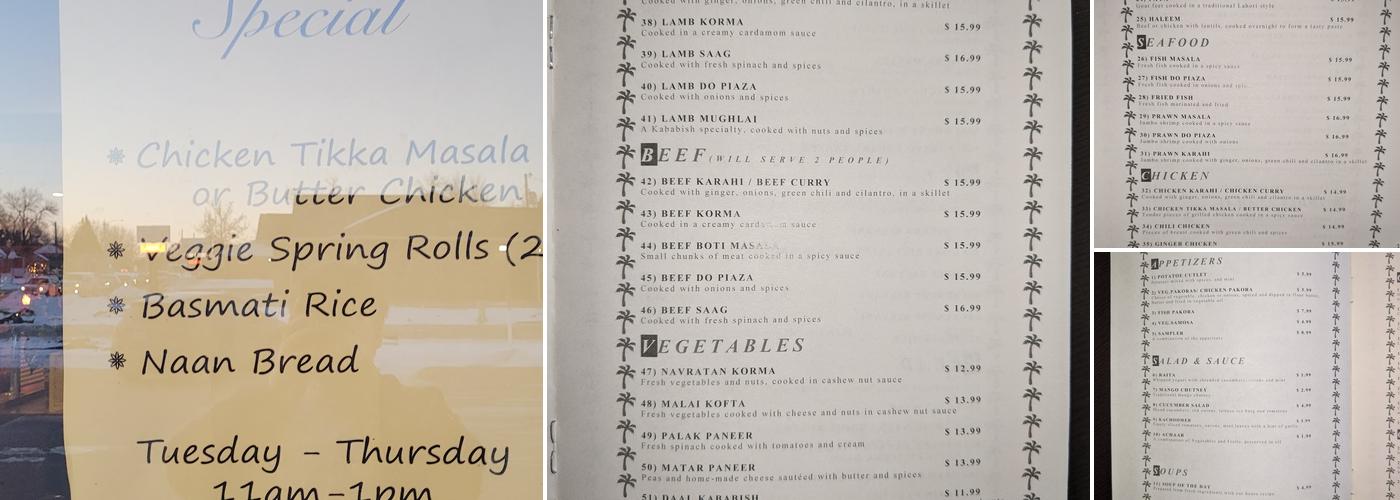 Special
Chicken Tikka Masala
or Butter Chicken
Veggie Spring Rolls (2
Basmati Rice
Naan Bread
Tuesday – Thursday
11am-1pm
Cooked with ginger, onions, green chili and cilantro, in a skillet
38) LAMB KORMA $ 15.99
Cooked in a creamy cardamom sauce
39) LAMB SAAG $ 16.99
Cooked with fresh spinach and spices
40) LAMB DO PIAZA $ 15.99
Cooked with onions and spices
41) LAMB MUGHLAI $ 15.99
A Kababish specialty, cooked with nuts and spices
BEEF (WILL SERVE 2 PEOPLE)
42) BEEF KARAHI / BEEF CURRY $ 15.99
Cooked with ginger, onions, green chili and cilantro, in a skillet
43) BEEF KORMA $ 15.99
Cooked in a creamy cardamom sauce
44) BEEF BOTI MASALA $ 15.99
Small chunks of meat cooked in a spicy sauce
45) BEEF DO PIAZA $ 15.99
Cooked with onions and spices
46) BEEF SAAG $ 16.99
Cooked with fresh spinach and spices
VEGETABLES
47) NAVRATAN KORMA $ 12.99
Fresh vegetables and nuts, cooked in cashew nut sauce
48) MALAI KOFTA $ 13.99
Fresh vegetables cooked with cheese and nuts in cashew nut sauce
49) PALAK PANEER $ 13.99
Fresh spinach cooked with tomatoes and cream
50) MATAR PANEER $ 13.99
Peas and home-made cheese sautéed with butter and spices
51) DAAL KABABISH $ 11.99
Goat feet cooked in a traditional Lahori style
25) HALEEM $ 15.99
Beef or chicken with lentils, cooked overnight to form a tasty paste
SEAFOOD
26) FISH MASALA $ 15.99
Fresh fish cooked in a spicy sauce
27) FISH DO PIAZA $ 15.99
Fresh fish cooked in onions and
28) FRIED FISH $ 15.99
Fresh fish marinated and fried
29) PRAWN MASALA $ 16.99
Jumbo shrimp cooked in a spicy sauce
30) PRAWN DO PIAZA $ 16.99
Jumbo shrimp cooked with onions
31) PRAWN KARAHI $ 16.99
Jumbo shrimp cooked with ginger, onions, green chili and cilantro in a skillet
CHICKEN
32) CHICKEN KARAHI / CHICKEN CURRY $ 14.99
Cooked with ginger, onions, green chili and cilantro in a skillet
33) CHICKEN TIKKA MASALA / BUTTER CHICKEN $ 14.99
Tender pieces of grilled chicken cooked in a spicy sauce
34) CHILI CHICKEN $ 14.99
Pieces of breast cooked with green chili and spices
35) GINGER CHICKEN $ 15.99
APPETIZERS
1) POTATOE CUTLET $ 3.99
2) VEG.PAKORAS/ CHICKEN PAKORA $ 5.99
3) FISH PAKORA $ 7.99
4) VEG.SAMOSA $ 4.99
5) SAMPLER $ 8.99
A combination of the appetizers
SALAD & SAUCE
6) RAITA
Whipped yogurt with shredded cucumbers, onions and mint
7) MANGO CHUTNEY $ 2.99
Traditional mango chutney
8) CUCUMBER SALAD $ 4.99
9) KACHOOMER
10) ACHAAR
A combination of Vegetables and fruits, preserved in oil
SOUPS
11) SOUP OF THE DAY $ 4.99